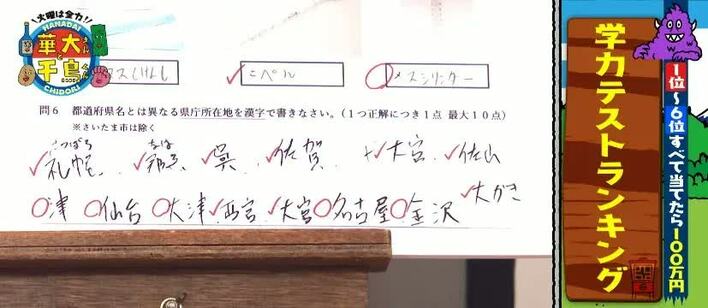 火曜は全力!!
HANADAI
華大さんと
千鳥くん
CHIDORI
こペル
メスシリンダー
問6 都道府県名とは異なる県庁所在地を漢字で書きなさい。(1つ正解につき1点 最大10点)
※さいたま市は除く
さつぽろ なは
札幌、那覇、呉、佐賀、大宮、佐山
津 仙台 大津 西宮、大宮 名古屋 金沢 大がき
学力テストランキング
1位~6位すべて当てたら100万円